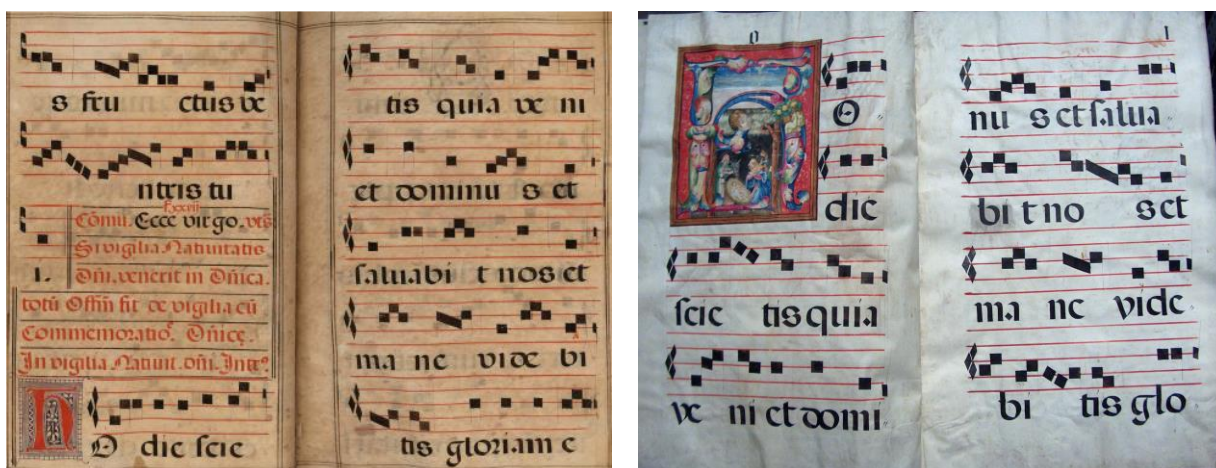 s fru ctus ve
ntris tu
fxxxii
i. Cōmu. Ecce virgo. vts
Si vigilia Natiuitatis
Dñi. venerit in Dñica.
totū Offm̄ fit de vigilia cū
Commemoratiõ. Dñicę.
In vigilia Natiuit. Dñi. Intr.
H O dic scie
tis quia ve ni
et dominu s et
saluabi t nos et
ma ne vide bi
tis gloriam e
H O
dic
scie tis quia
ve ni et domi
1
nu s et salua
bi t no s et
ma ne vide
bi tis glo